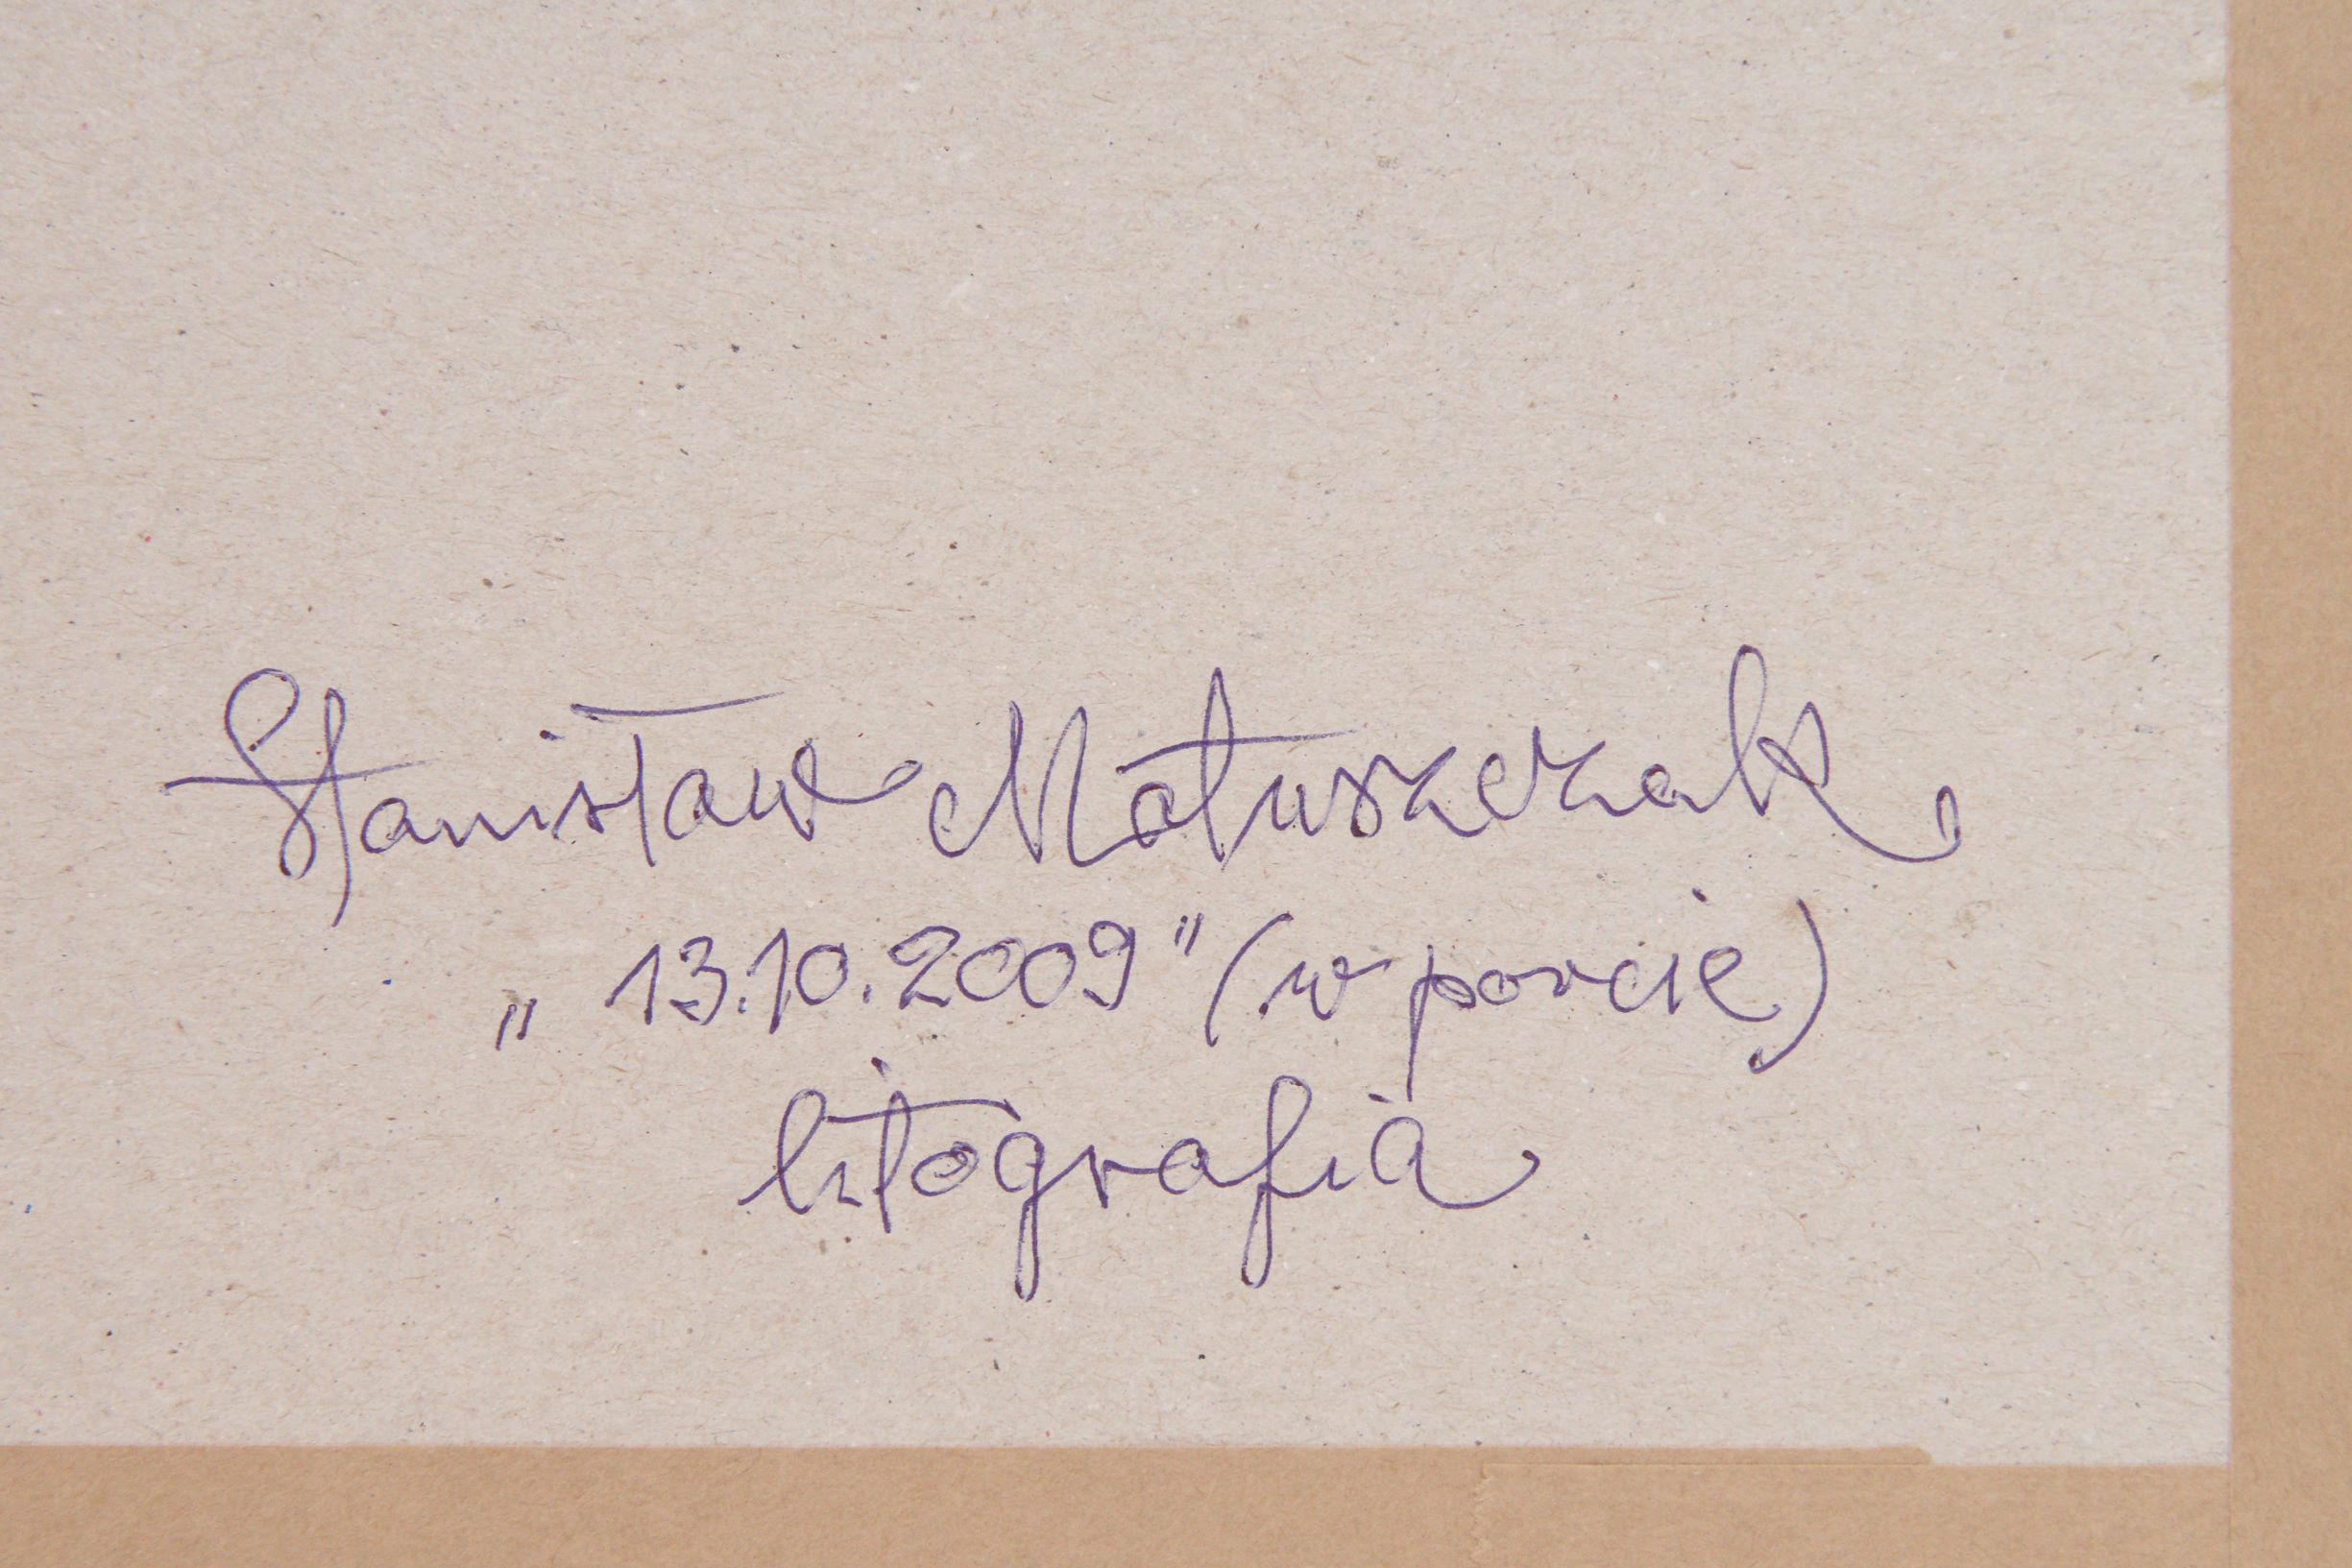 Stanisław Matuszczak
„ 13.10.2009" (w porcie)
litografia